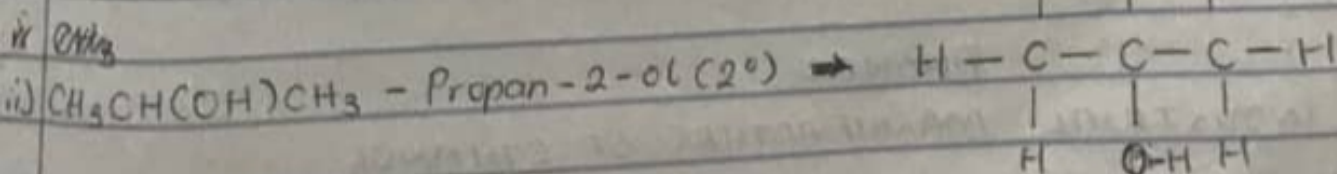 ii) CH3CH(OH)CH3 - Propan-2-ol (2°) → H — C — C — C — H
H O-H H